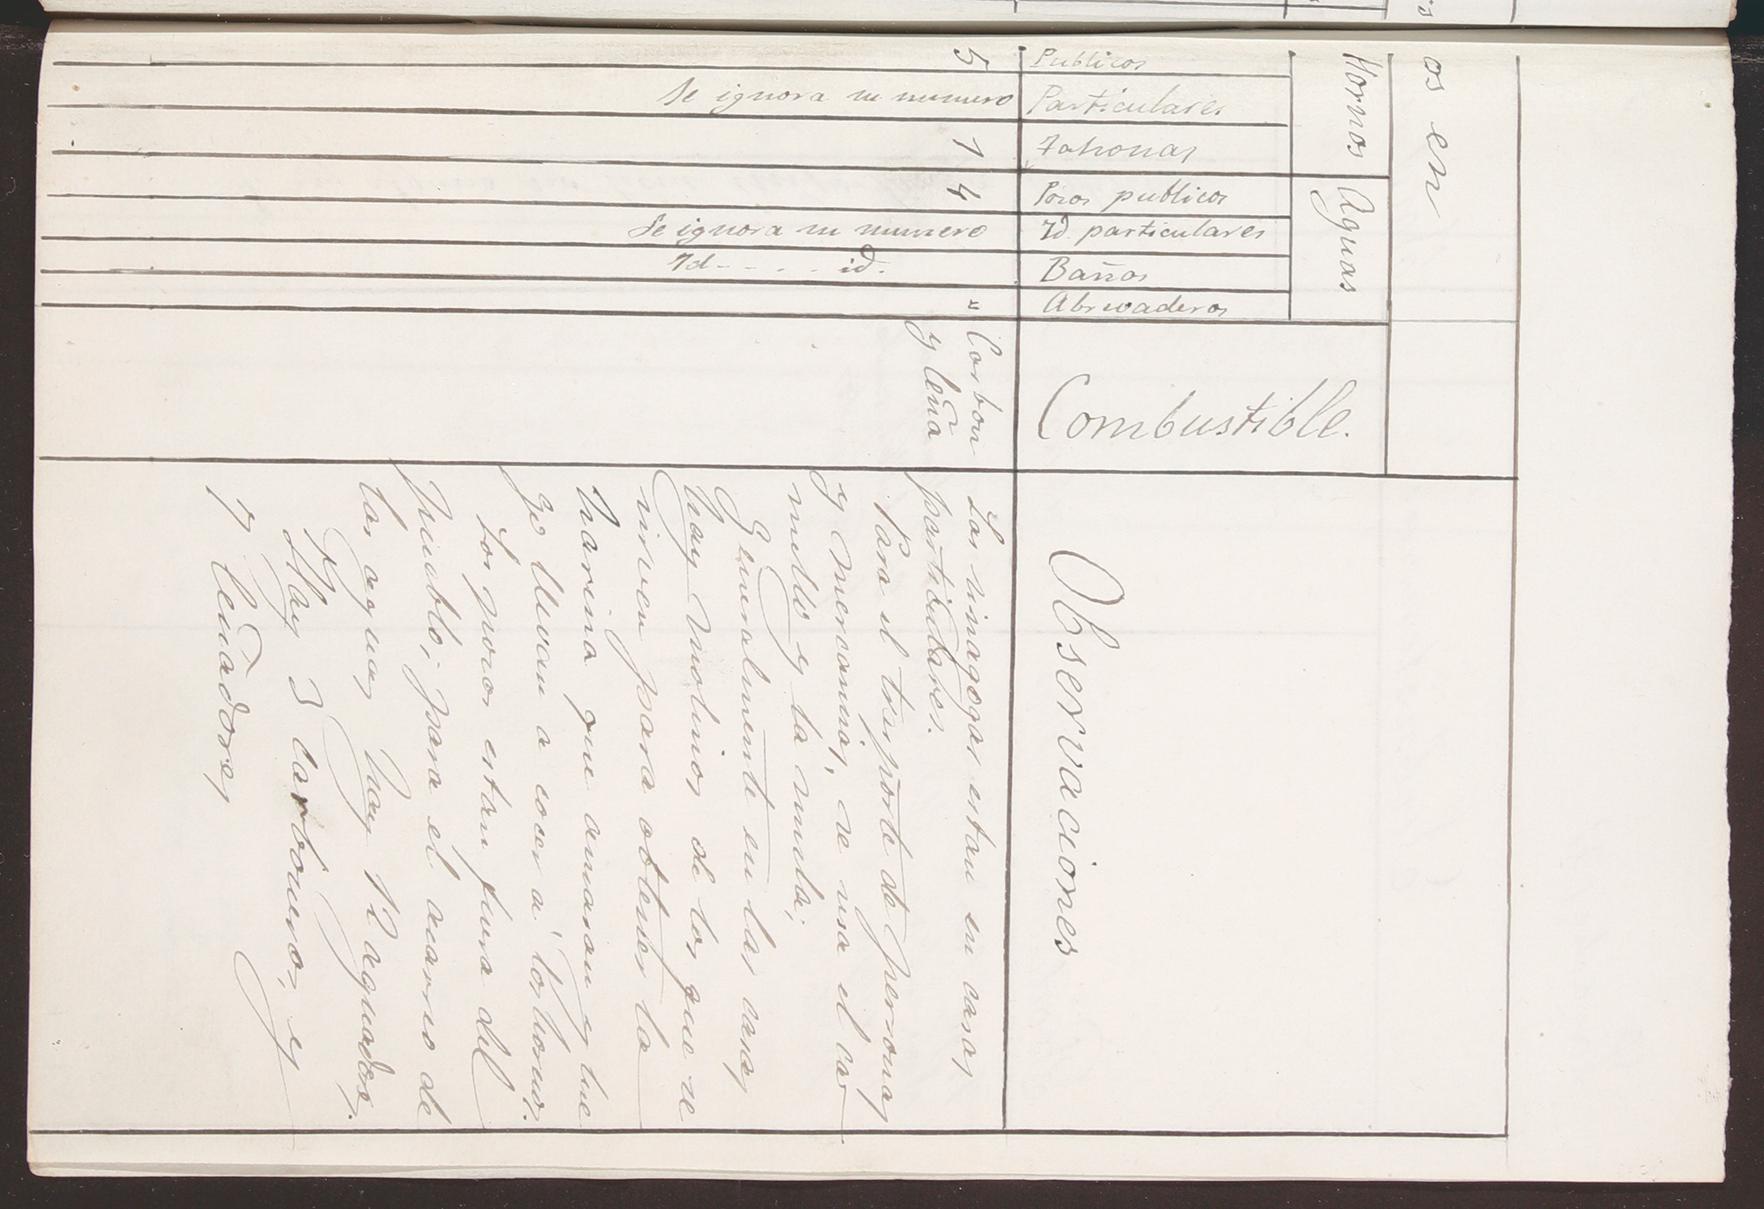 os en
Hornos
Aguas
Publicos
5
Particulares
Se ignora su numero
Tahonas
1
Pozos publicos
4
Id. particulares
Se ignora su numero
Baños
Id - - . . - id.
Abrevaderos
"
Combustible.
Carbon
y leña
Observaciones
Las sinagogas estan en casas
particulares.
Para el trasporte de personas
y mercancias, se usa el ca-
mello y la mula;
Generalmente en las casas
hay molinos de los que se
sirven para obtener la
harina que amasan y lue
go llevan a cocer a los hornos.
Los pozos estan fuera del
pueblo; para el acarreo de
las aguas hay 12 aguadores.
Hay 3 carboneros y
7 leñadores